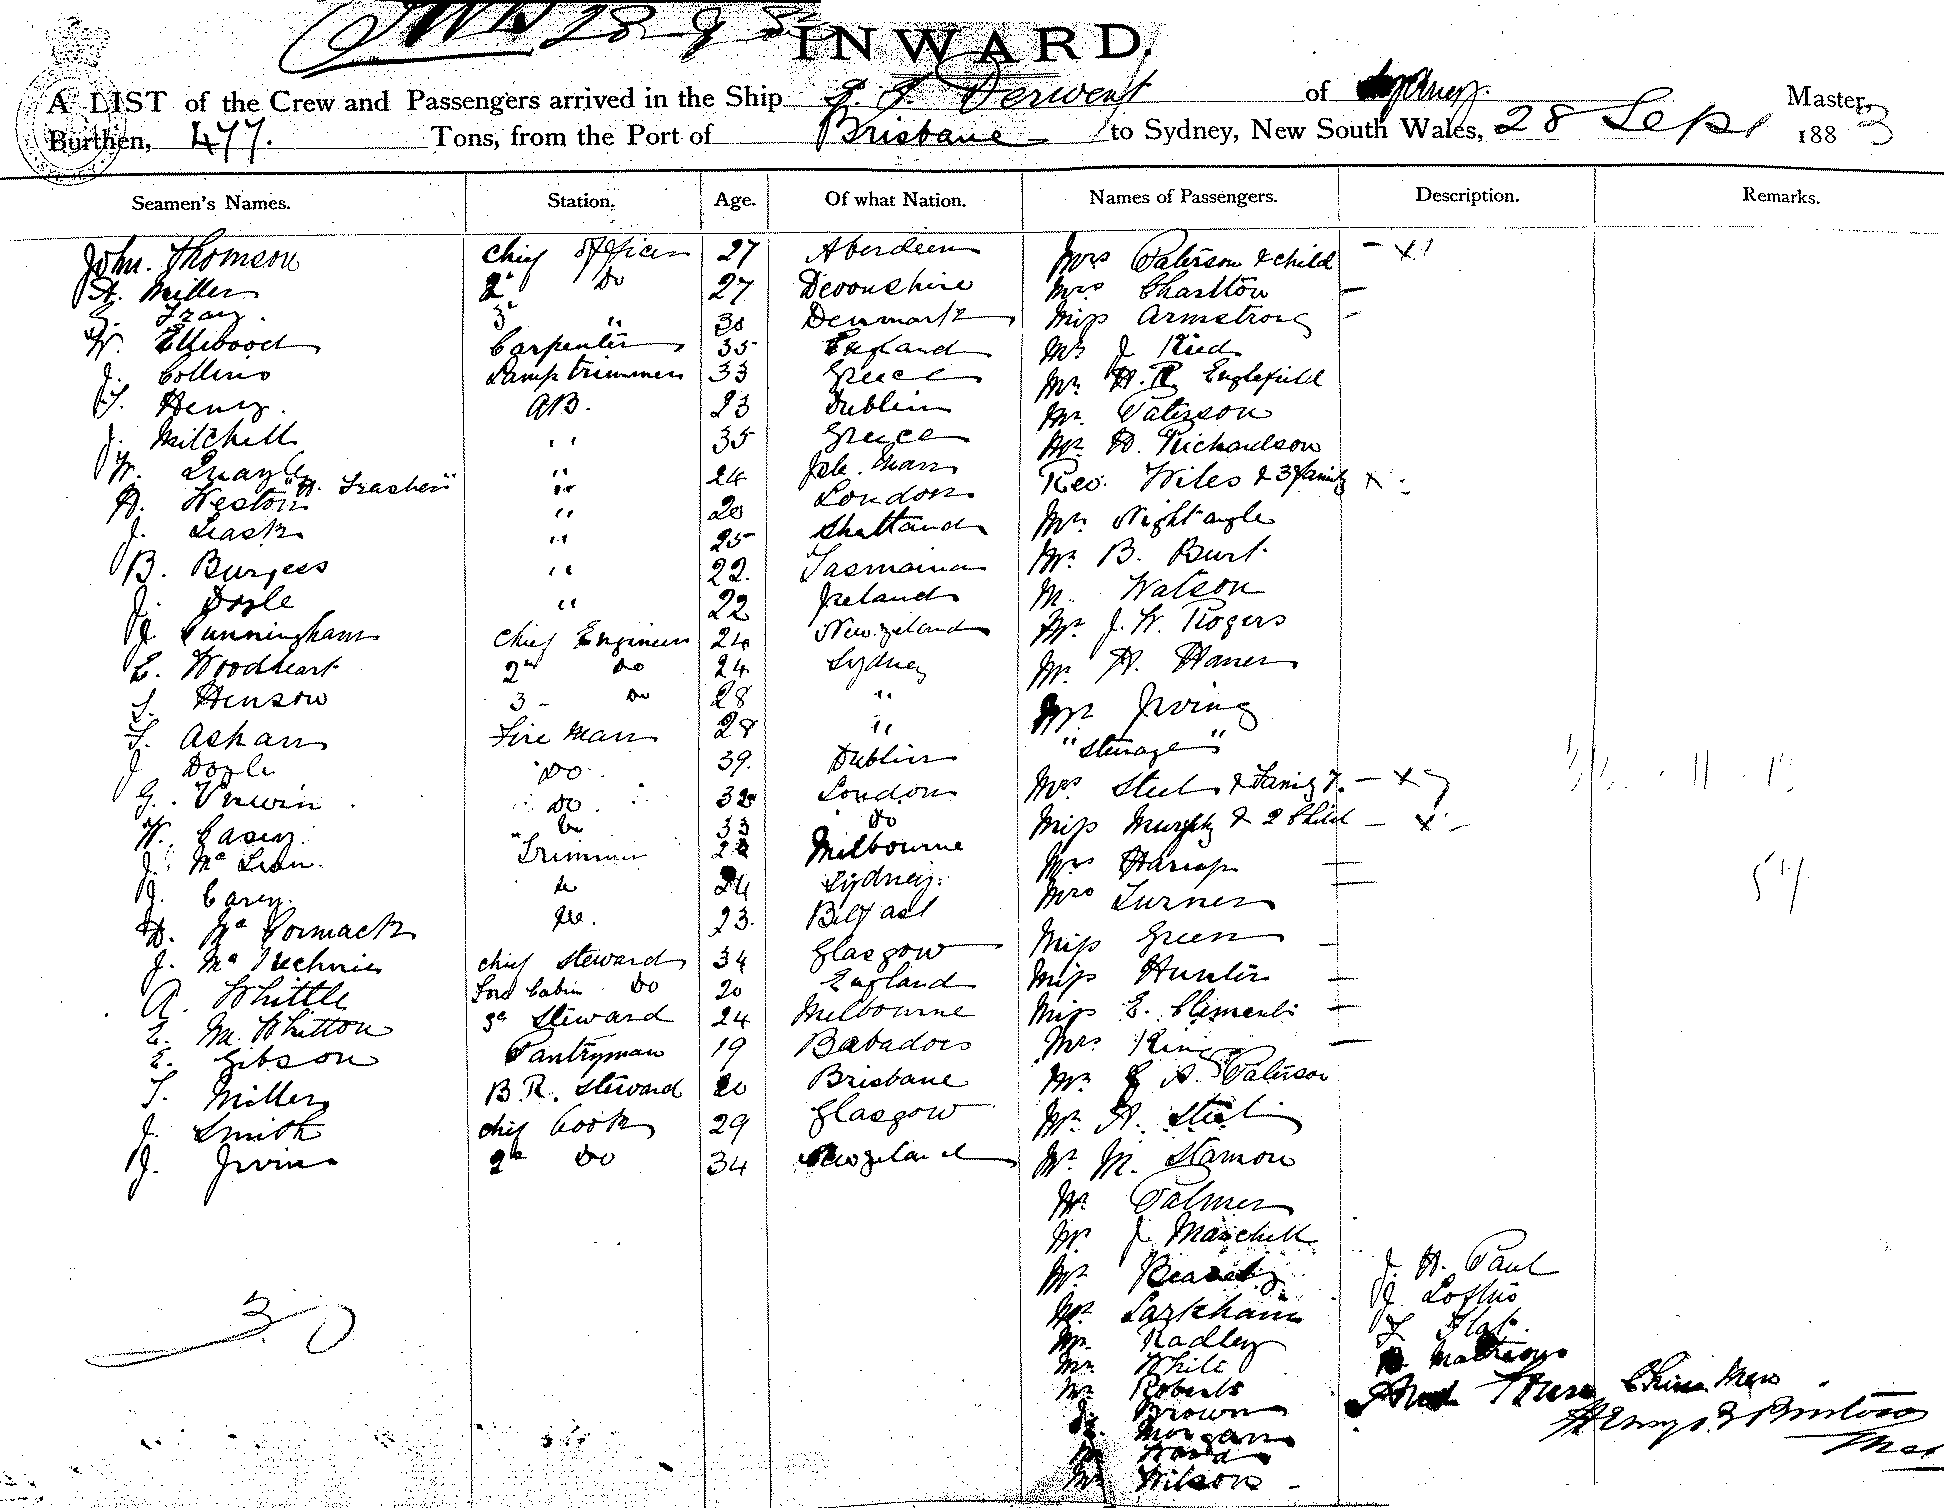 28
INWARD.
A LIST of the Crew and Passengers arrived in the Ship Derwent of Sydney Master,
Burthen, 477. Tons, from the Port of Brisbane to Sydney, New South Wales, 28 Sept 1883
Seamen's Names. Station. Age. Of what Nation. Names of Passengers. Description. Remarks.
John. Thomson Chief Officer 27 Aberdeen Mrs Paterson & child – x
A. Miller 2" Do 27 Devonshire Mrs Charlton –
Gray. 3" " 30 Denmark Miss Armstrong –
W. Ellwood Carpenter 35 England Mr J Ried
J. Collins Lamp trimmer 33 Greece Mr H. R Englefield
T. Henry. AB. 23 Dublin Mr Paterson
J. Mitchell " 35 Greece Mr H. Richardson
W. Quayle " 24 Isle. Man Rev. Wiles & 3 family x
H. Weston " 20 London Mr Nightangle
J. Leask " 25 Shetland Mr B. Burt
B. Burgess " 22. Tasmania M. Watson
J. Doyle " 22 Ireland Mr J. W. Rogers
J. Cunningham Chief Engineer 24 New Zeland Mr H. Haner
E. Woodheart 2" Do 24 Sydney Mr Irving
Henson 3 – Do 28 " "Sterage"
T. Asham Fire Man 28 " Mrs Steel & Family 7. – x 7
J Doyle Do 39. Dublin Miss Murphy & 2 Child – x –
G. Unwin Do 32 London Mrs Harrap –
W. Casey. Do 33 Do Mrs Turner –
J. Mc Lean. Trimmer Milbourne Miss Green –
J. Carey. Do 24 Sydney. Miss Hunter –
D. Mc Cormack Do. 23. Belfast Miss E. Clements –
J. Mc Chief Steward 34 Glasgow Mrs King –
A. Whittle Fore Cabin Do 20 England Mr A. Paterson
E. M. Whitton 3rd Steward 24 Melbourne Mr H. Steel
E. Gibson Pantryman 19 Babadoes Mr M. Stamon
T. Miller B.R. Steward 20 Brisbane Mr Palmer
J. Smith Chief Cook 29 Glasgow Mr J Marchell
J. Irvine 2" Do 34 New Zeland Mr
Mr Larkham
Mr Radley
Mr White
Mr Roberts
Brown
Morgan
Ward
Mr Wilson –
J. H. Paul
J Loftus
Mathews
China Man
30
57